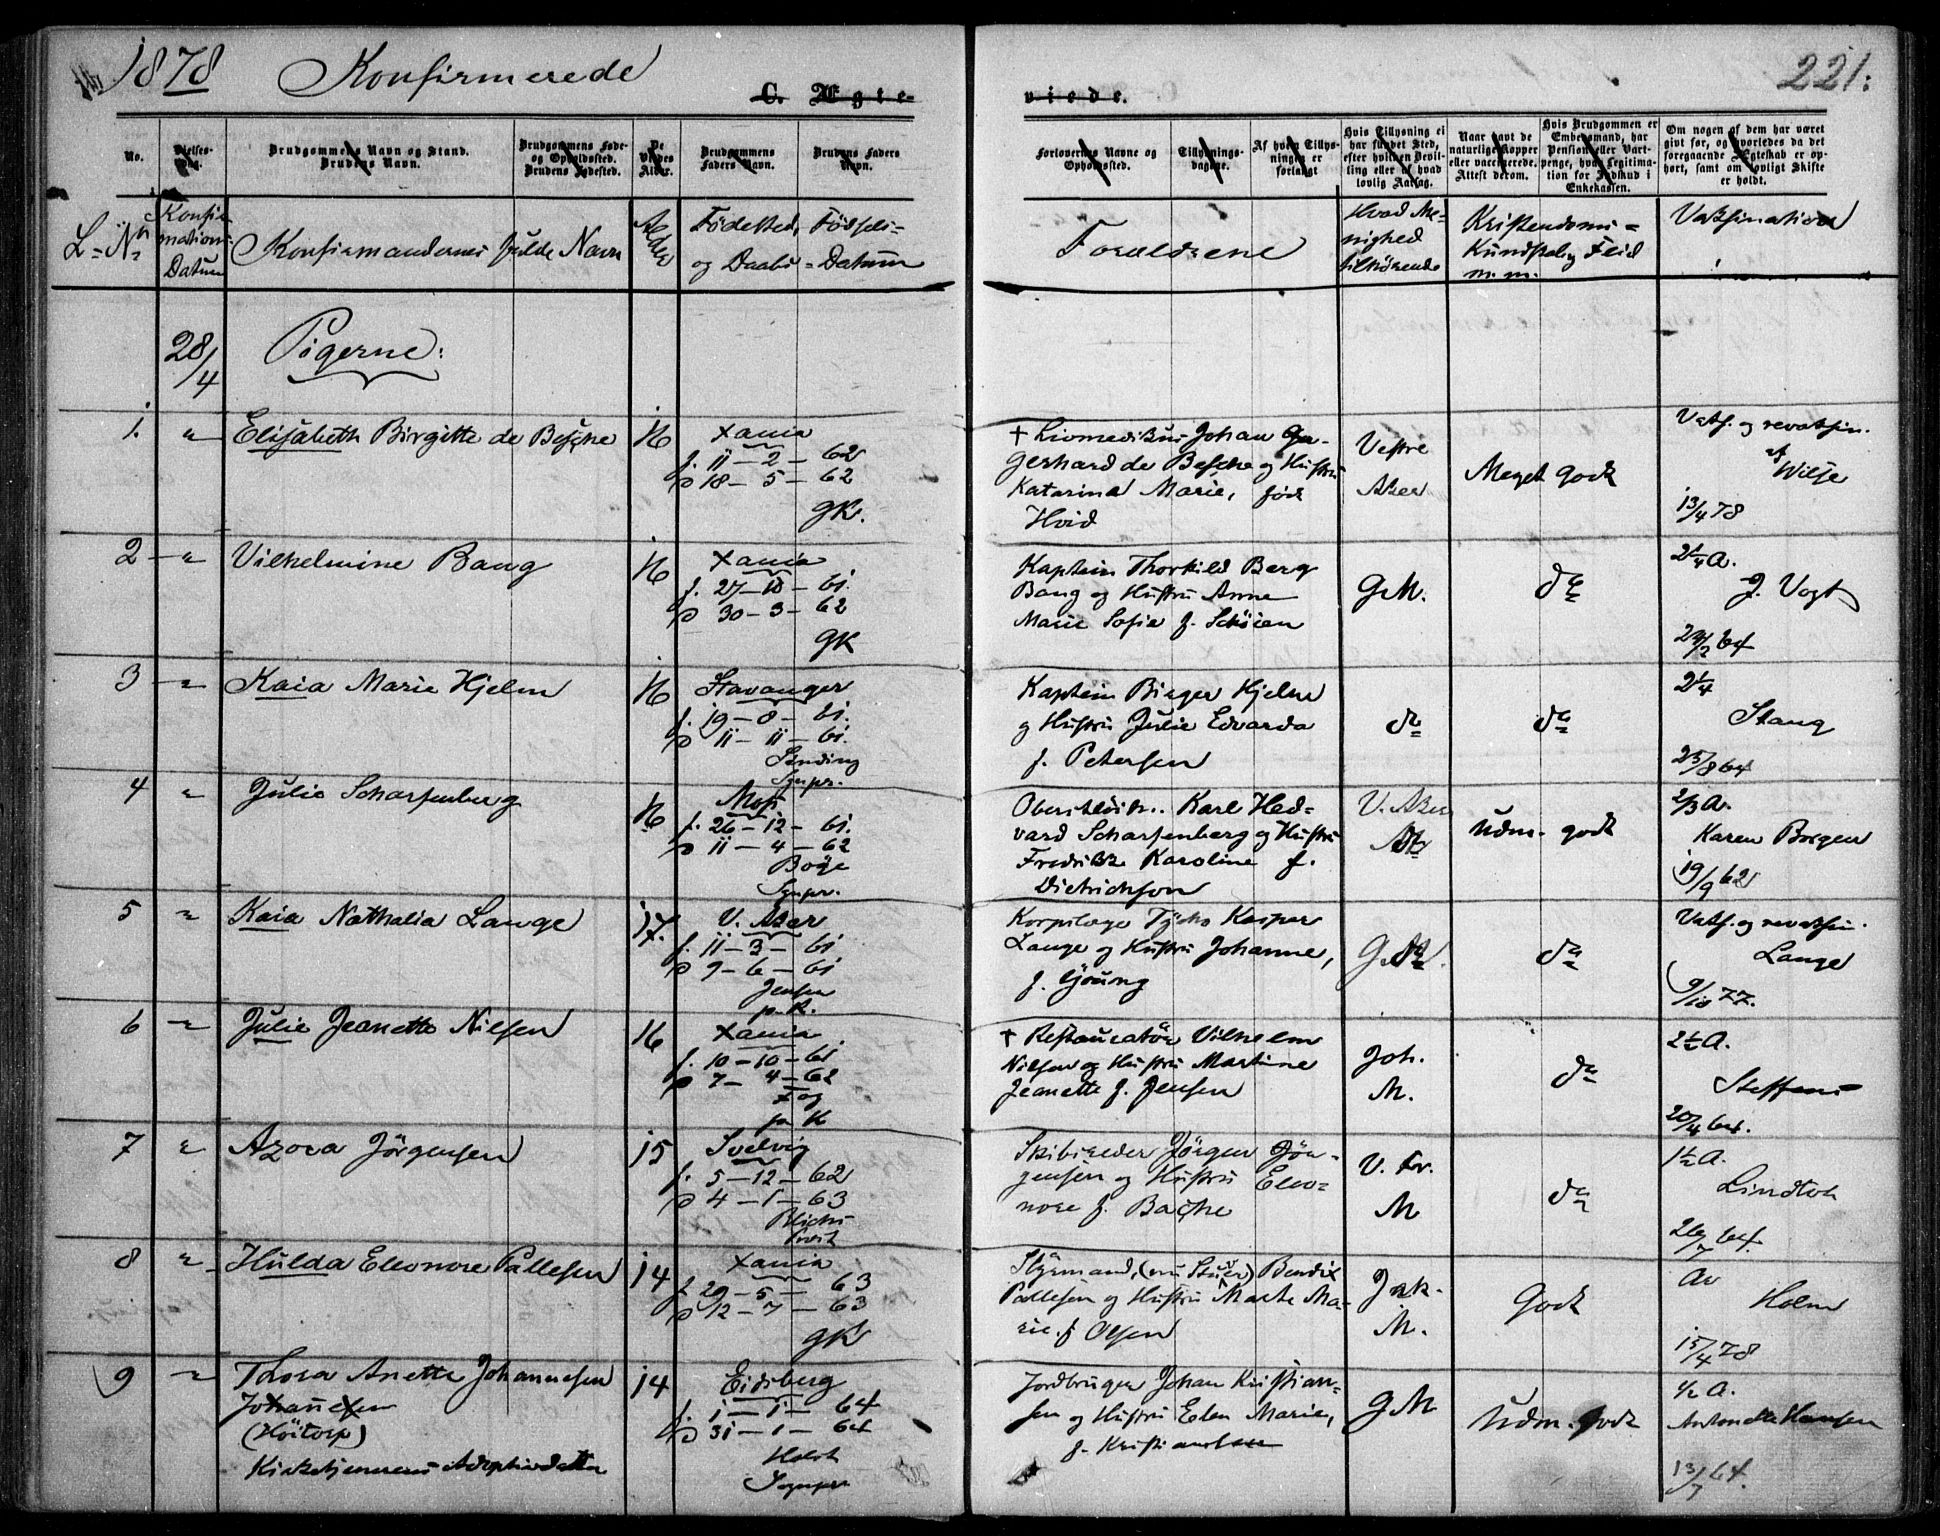 1878 Konfirmerede
221.
C. Ægte-
viede.
No.
Vielses-
dag.
Brudgommens Navn og Stand.
Brudens Navn.
Brudgommens Føde-
og Opholdssted.
Brudens Fødested.
De
Viedes
Alder.
Brudgommens
Faders Navn.
Brudens Faders
Navn.
Forlovernes Navne og
Opholdssted.
Tillysnings-
dagene.
Af hvem Tillys-
ningen er
forlangt
Hvis Tillysning ei
har fundet Sted,
efter hvilken Bevil-
ling eller af hvad
lovlig Aarsag.
Naar havt de
naturlige Kopper
eller vaccinerede.
Attest derom.
Hvis Brudgommen er
Embedsmand, har
Pension eller Vart-
penge, hvad Legitima-
tion for Indskud i
Enkekassen.
Om nogen af dem har været
givt før, og hvorledes da det
foregaaende Ægteskab er op-
hørt, samt om lovligt Skifte
er holdt.
L-N
Konfir-
mations-
Datum
Konfirmandernes fulde Navn
Alder
Fødested, Fødsels-
og Daabs-Datum
Forældrene
Hvad Me-
nighed
tilhørende
Kristendoms-
Kundskab, Flid
m.m.
Vaksination
28/4
Pigerne:
1. " Elisabeth Birgitte de Besche 16
Xania
f. 11-2-62
D 18-5-62
GK.
† Livmedikus Johan
Gerhard de Besche og Hustru
Katarina Marie, født
Hvid
Vestre
Aker
Meget godt
Vaks. og revaksin.
af
Wilse
13/4 78
2 " Vilhelmine Bang 16
Xania
f. 27-10-61.
D 30-3-62
GK
Kaptein Thorkild Berg
Bang og Hustru Anne
Marie Sofie f. Schöien
G.M.
do
2 1/4 A.
J. Vogt
3 " Kaia Marie Hjelm 16
Stavanger
f. 19-8-61.
D 11-11-61.
Sending
Sgnpr.
Kaptein Birger Hjelm
og Hustru Julie Edvarda
f. Petersen
do
do
2 1/4
Stang
25/8 64
4 " Julie Scharfenberg 16
Moss
f. 26-12-61.
D 11-4-62
Böge
Sgnpr.
Oberstløitn. Karl Hed-
vard Scharfenberg og Hustru
Fredrikke Karoline f.
Dietrichson
V. Aker
Udm. godt
Karen Borgen
19/9 62
5 " Kaia Nathalia Lange 17.
V. Aker
f. 11-3-61
D 9-6-61
Jensen
p. K.
Korpslæge Tycho Kasper
Lange og Hustru Johanne,
f. Gjöung
do
Vaks. og revaksin.
Lange
9/10 77.
6 " Julie Jeanette Nilsen 16
Xania
f. 10-10-61
D 7-4-62
† Restauratör Vilhelm
Nilsen og Hustru Martine
Jeanette f. Jensen
Joh.
M.
do
2 1/2 A.
Steffens
20/4 64.
7 " Azora Jörgensen 15
Svelvig
f. 5-12-62
D 4-1-63
Blichs
Provst
Skibsreder Jörgen Jör-
gensen og Hustru Eleo-
nore f. Backe
V. Fr.
M
do
1 1/2 A.
Lindtoh
26/7 64.
8 " Hulda Eleonore Pallesen 14
Xania
f. 29-5-63
D 12-7-63
GK
Styrmand, (nu Stuer) Bendix
Pallesen og Hustru Marte Ma-
rie. f Olsen
Jak.
M.
Godt
Av
Holm
15/4 78
9 " Thora Anette Johannesen 14
Johannesen
(Höitorp)
Kirketjenerens Adoptivdatter
Eidsberg
f. 1-1-64
D 31-1-64
Holst
Sognepr
Jordbruger Johan Kristian-
sen og Hustru Elen Marie,
f. Kristiansen
G M
Udm. Godt
1/2 A.
Antonette Hansen
13/7 64.